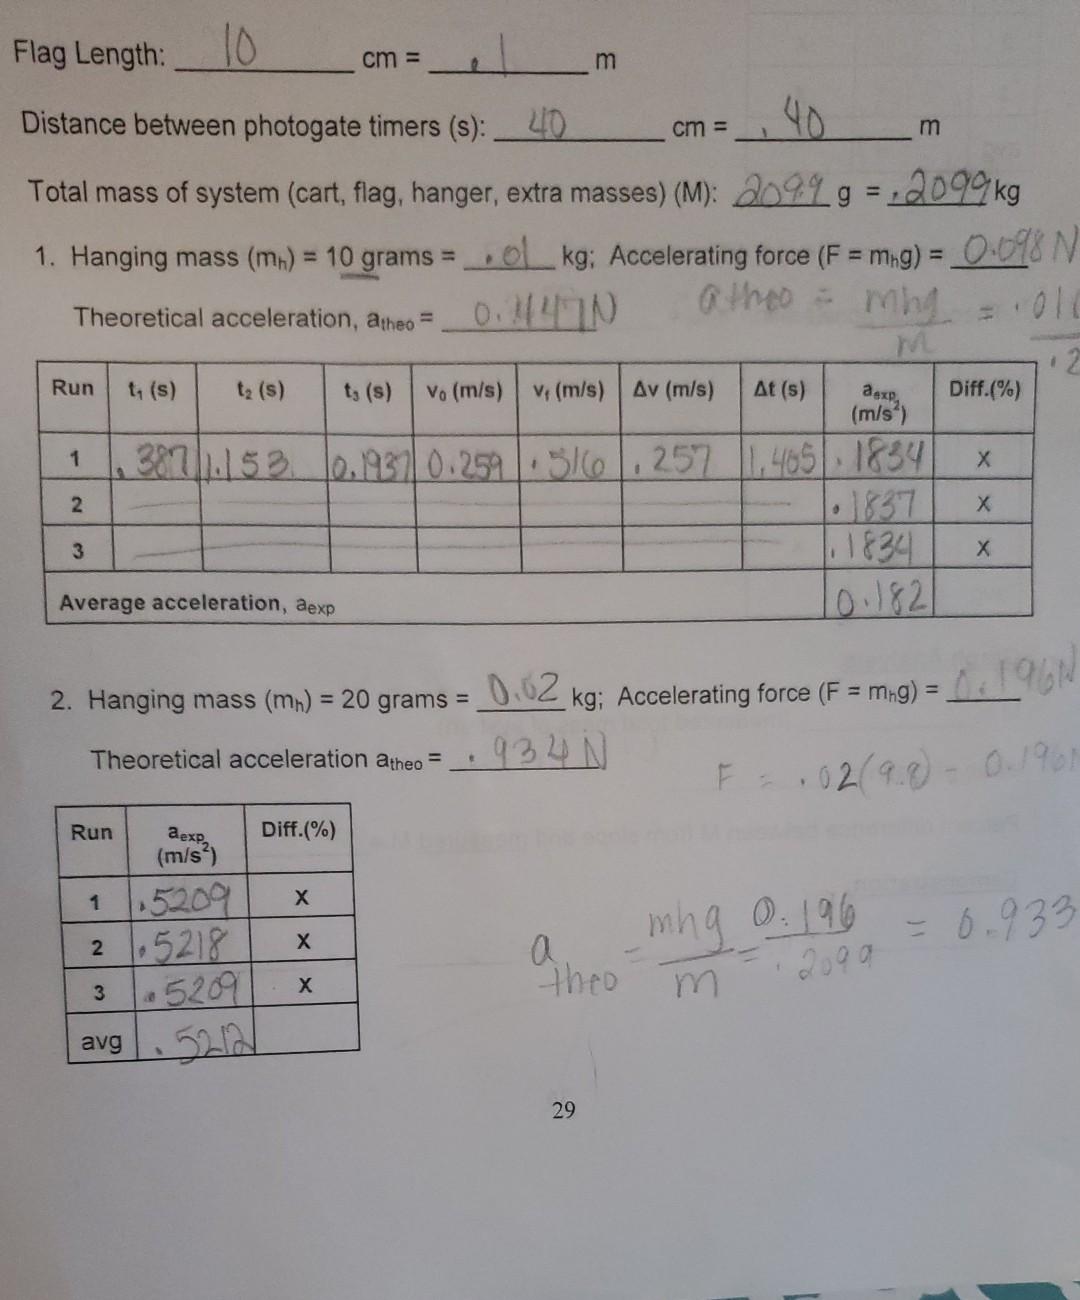 Flag Length: 10 cm = .1 m
Distance between photogate timers (s): 40 cm = .40 m
Total mass of system (cart, flag, hanger, extra masses) (M): 209.9 g = .2099 kg
1. Hanging mass (mh) = 10 grams = .01 kg; Accelerating force (F = mhg) = 0.098 N
Theoretical acceleration, atheo = 0.447N
atheo = mhg / m =
Run t1 (s) t2 (s) t3 (s) v0 (m/s) vf (m/s) Δv (m/s) Δt (s) aexp (m/s²) Diff.(%)
1 .387 1.153 0.1937 0.259 .516 .257 1.405 .1834 X
2 .1837 X
3 .1834 X
Average acceleration, aexp 0.182
2. Hanging mass (mh) = 20 grams = 0.02 kg; Accelerating force (F = mhg) = 0.196N
Theoretical acceleration atheo = .934 N
F = .02(9.8) = 0.196N
Run aexp (m/s²) Diff.(%)
1 .5209 X
2 .5218 X
3 .5209 X
avg .5212
a theo = mhg / m = 0.196 / .2099 = 0.933
29